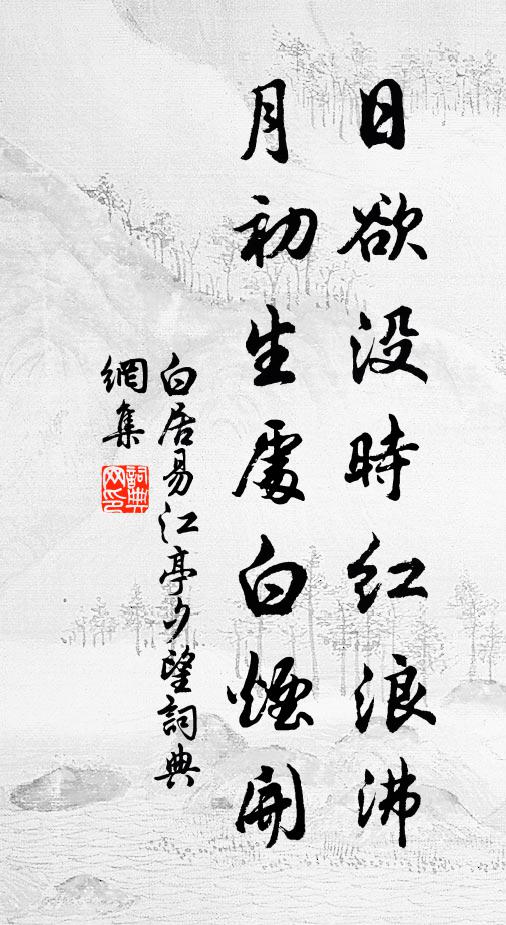 日欲没時紅浪沸
月初生處白煙開
白居易江亭夕望詞典
網集
詞典
网印